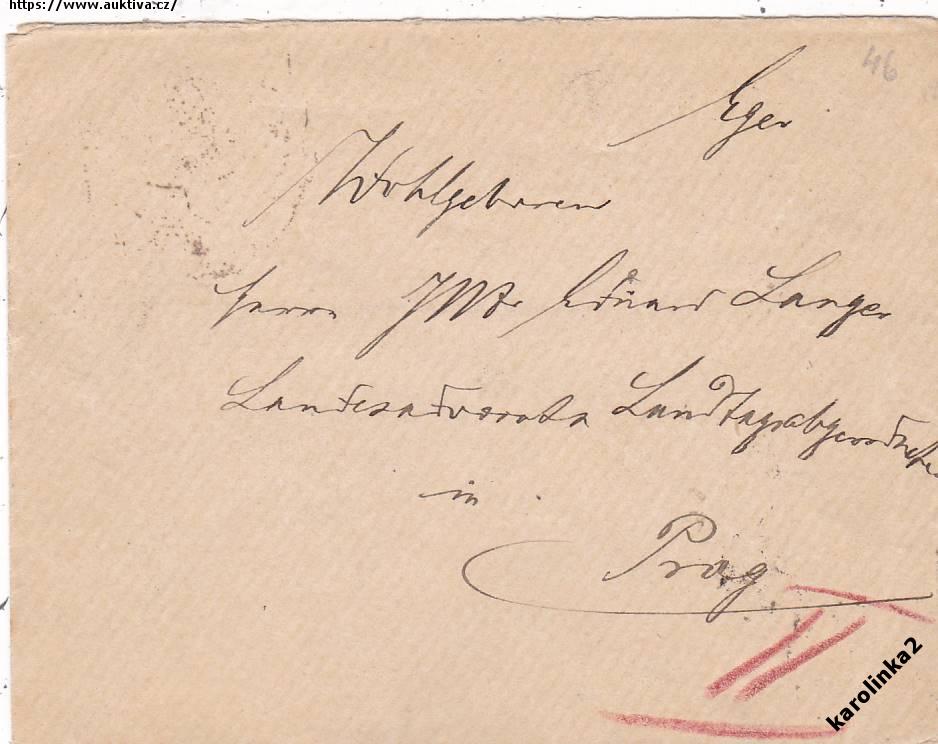 https://www.auktiva.cz/
46
Eger
Wohlgeboren
Herrn JUDr Eduard Langer
Landesadvocat Landtagsabgeordneter
in
Prag
II
karolinka2